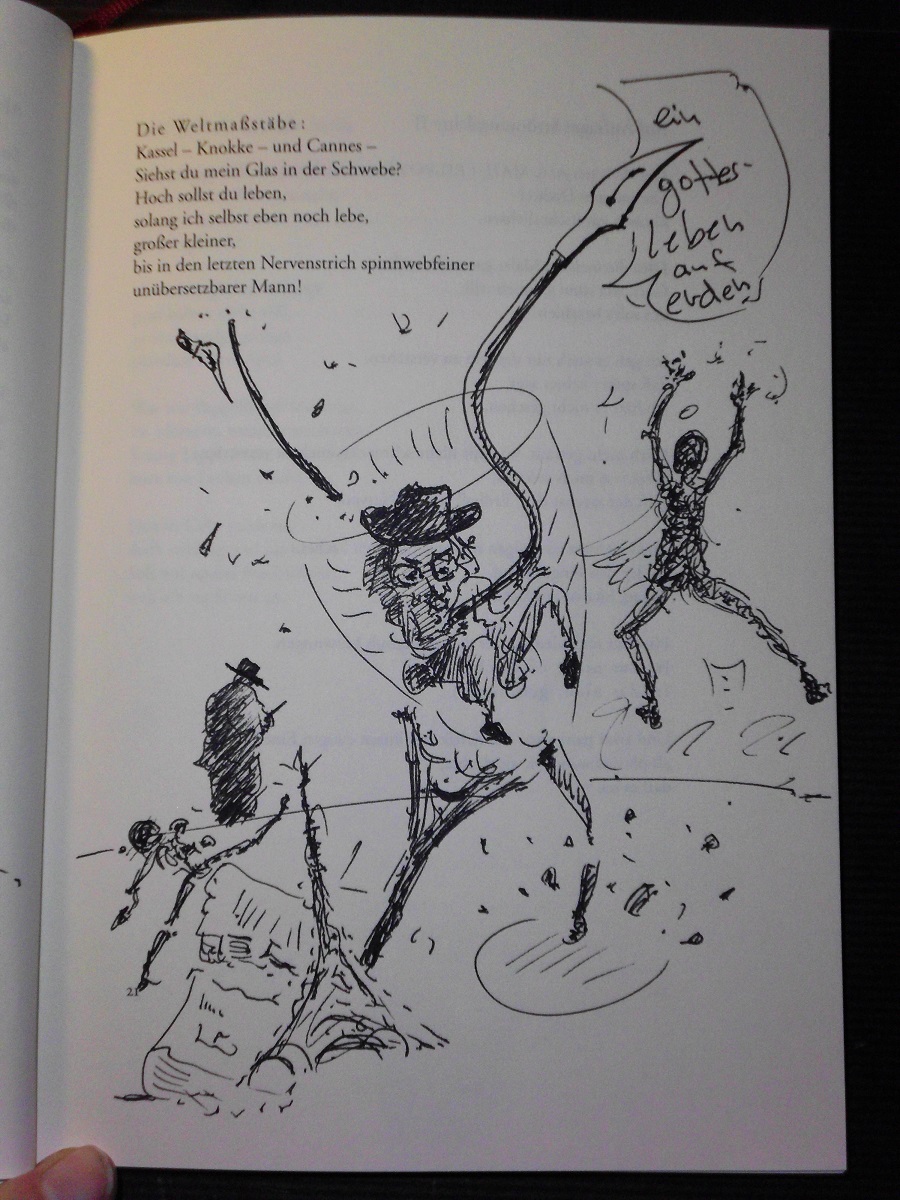 Die Weltmaßstäbe:
Kassel – Knokke – und Cannes –
Siehst du mein Glas in der Schwebe?
Hoch sollst du leben,
solang ich selbst eben noch lebe,
großer kleiner,
bis in den letzten Nervenstrich spinnwebfeiner
unübersetzbarer Mann!
ein
götter-
leben
auf
erden
21